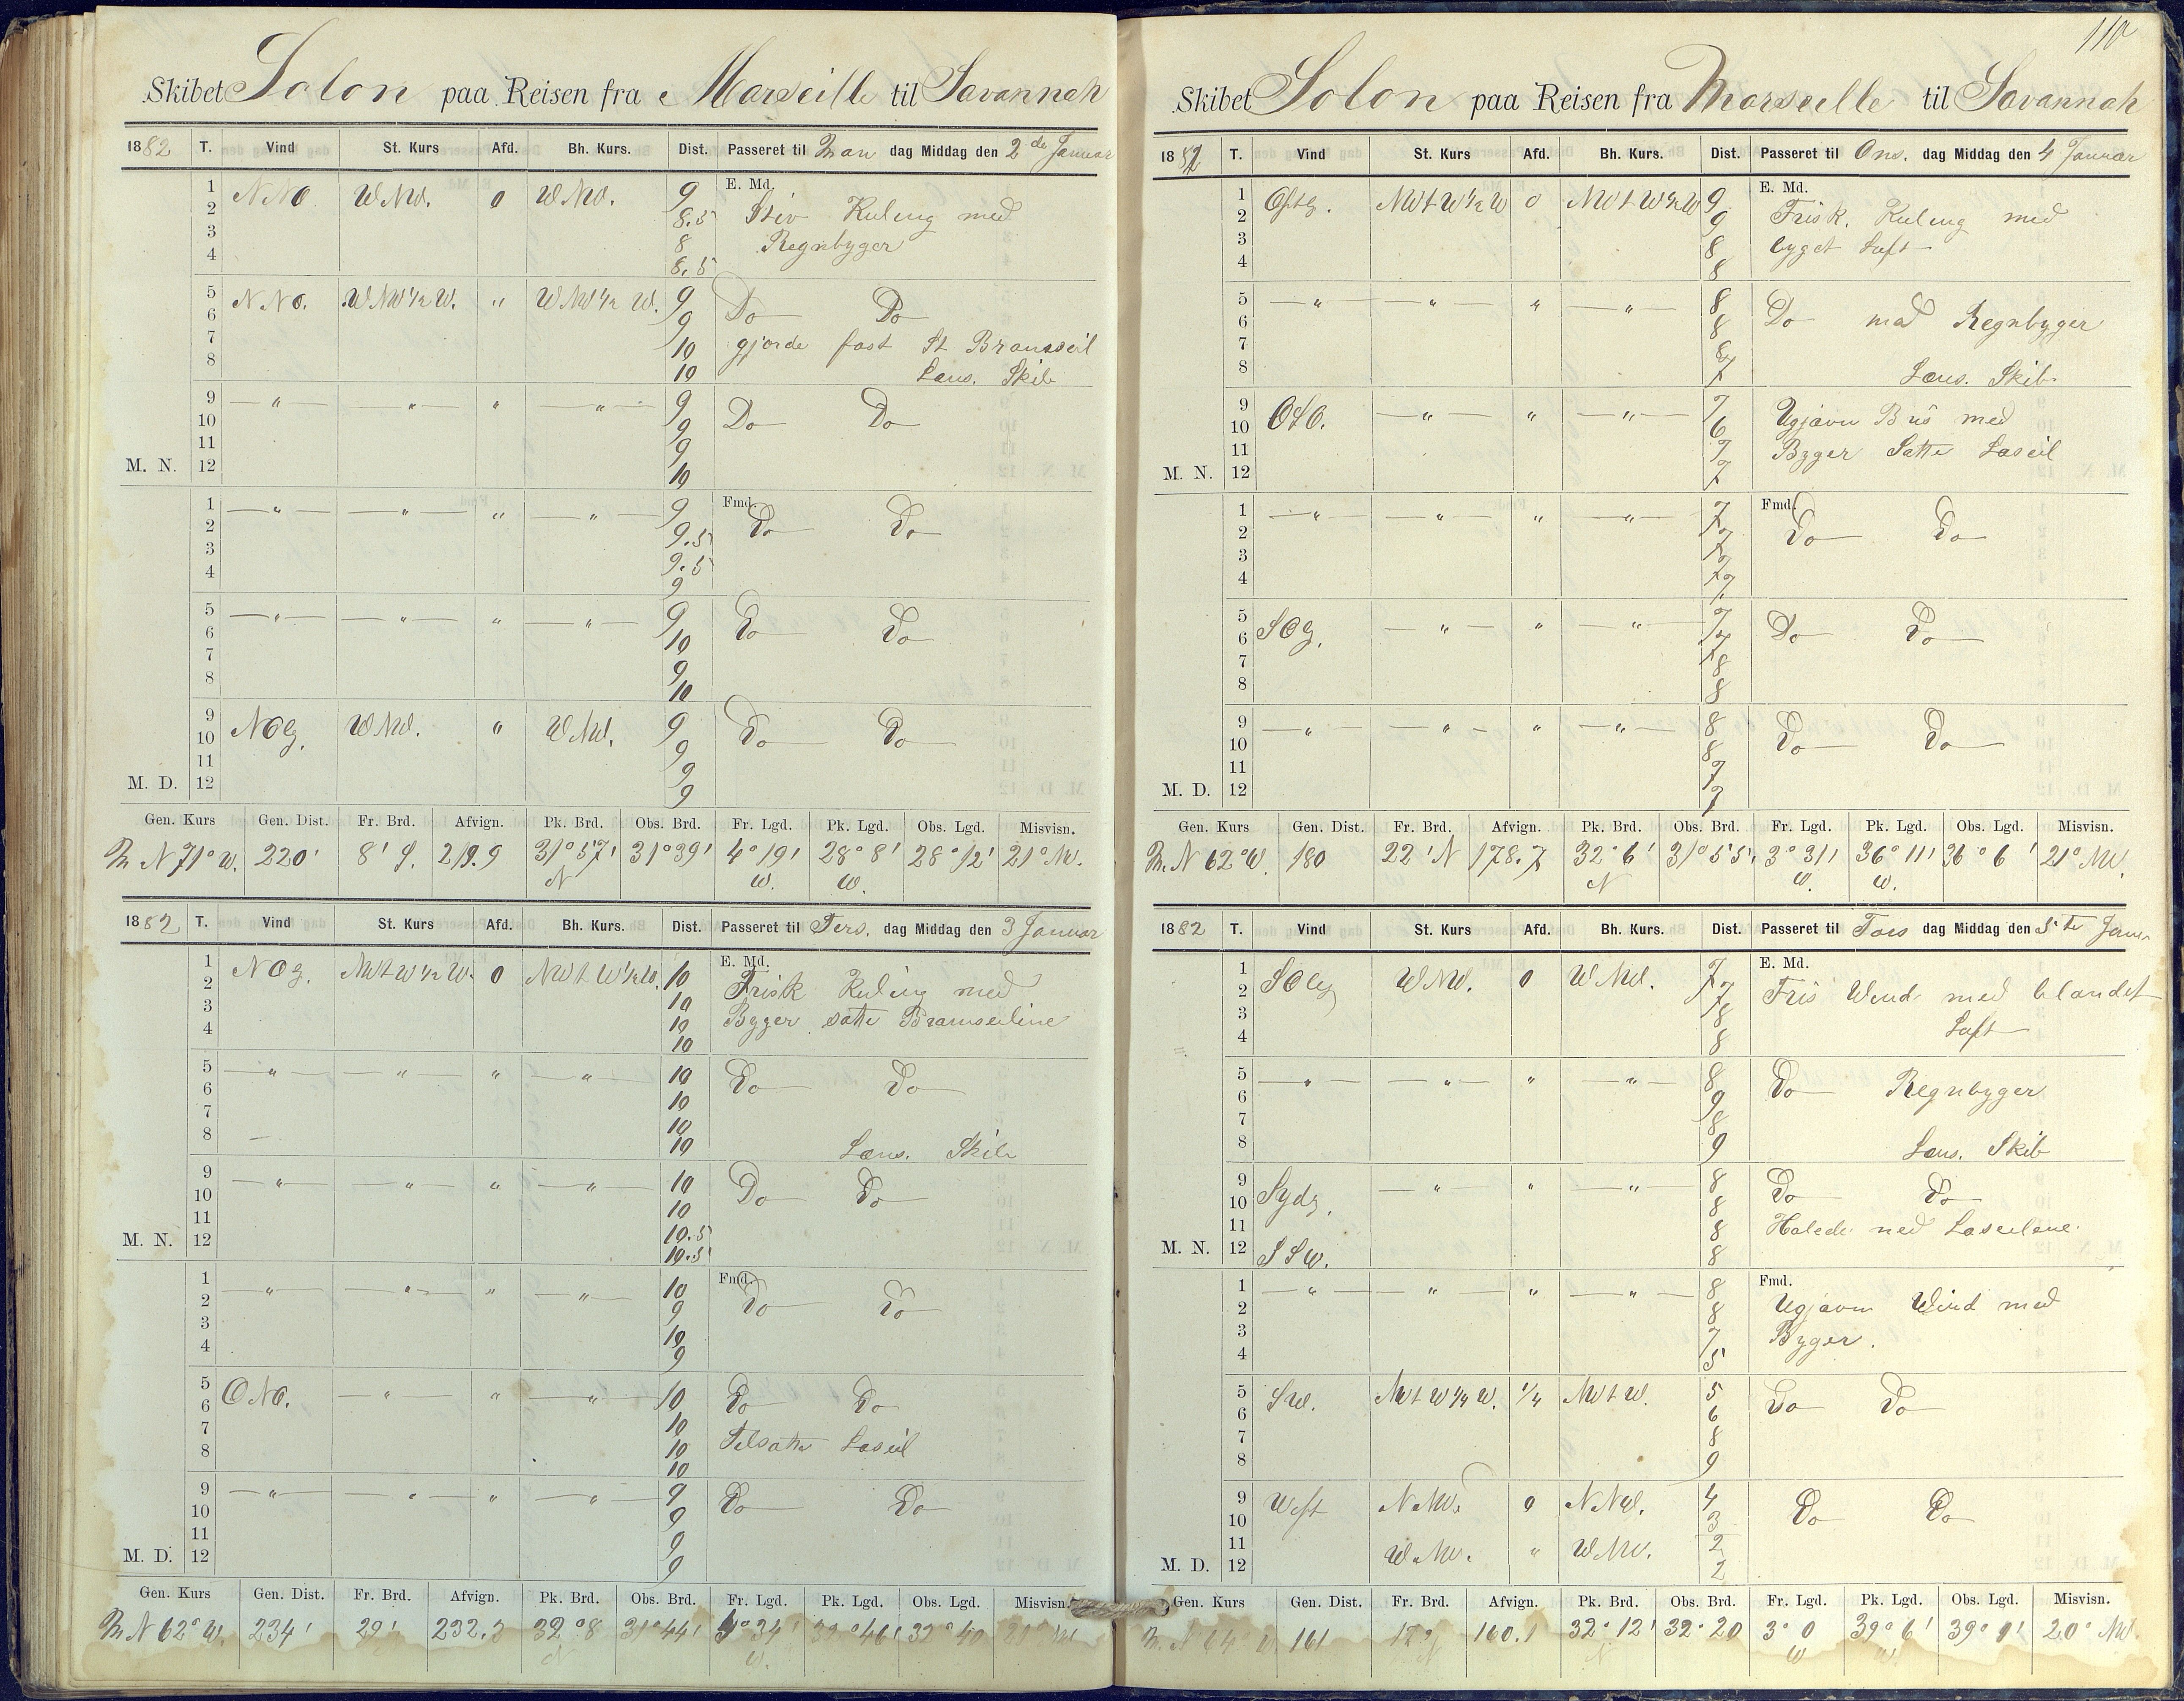 110
Skibet Solon paa Reisen fra Marseille til Savannah
1882 T. Vind St. Kurs Afd. Bh. Kurs. Dist. Passeret til Man dag Middag den 2de Januar
E. Md.
1 NNO WNW. 0 WNW. 9
2 8.5 Stiv Kuling med
3 8 Regnbyger
4 8.5
5 NNO. WNW 1/2 W. " WNW 1/2 W. 9 Do Do
6 9
7 10 gjorde fast St. Bramseil
8 10 Lens. Skib
9 — " — — " — " — " — 9 Do Do
10 9
11 9
M. N. 12 10
Fmd.
1 — " — — " — " — " — 9 Do Do
2 9.5
3 9.5
4 9
5 — " — — " — " — " — 9 Do Do
6 10
7 9
8 10
9 NOg. WNW. " WNW. 9 Do Do
10 9
11 9
M. D. 12 9
Gen. Kurs Gen. Dist. Fr. Brd. Afvign. Pk. Brd. Obs. Brd. Fr. Lgd. Pk. Lgd. Obs. Lgd. Misvisn.
N 71° W. 220' 8' S. 219.9 31° 57' N 31° 39' 4° 19' W. 28° 8' W. 28° 12' 21° NW.
1882 T. Vind St. Kurs Afd. Bh. Kurs. Dist. Passeret til Tirs. dag Middag den 3 Januar
E. Md.
1 NOg. NWtW 1/2 W. 0 NWtW 1/2 W. 10 Frisk Kuling med
2 10
3 10 Byger satte Bramseilene
4 10
5 — " — — " — " — " — 10 Do Do
6 10
7 10
8 10 Lens. Skib
9 — " — — " — " — " — 10 Do Do
10 10
11 10.5
M. N. 12 10.5
Fmd.
1 — " — — " — " — " — 10 Do Do
2 9
3 10
4 9
5 ONO. — " — " — " — 10 Do Do
6 10
7 10 Tilsatte Laseil
8 10
9 — " — — " — " — " — 9 Do Do
10 9
11 9
M. D. 12 9
Gen. Kurs Gen. Dist. Fr. Brd. Afvign. Pk. Brd. Obs. Brd. Fr. Lgd. Pk. Lgd. Obs. Lgd. Misvisn.
N 62° W. 234' 29' 232.3 32° 8 N 31° 44' 4° 34' W. 32° 46' 32° 40 21° NW
Skibet Solon paa Reisen fra Marseille til Savannah
1882 T. Vind St. Kurs Afd. Bh. Kurs. Dist. Passeret til Ons. dag Middag den 4 Januar
E. Md.
1 Ostlg. NWtW 1/2 W 0 NWtW 1/2 W 9 Frisk. Kuling med
2 9
3 8 byget Luft
4 8
5 — " — — " — " — " — 8 Do med Regnbyger
6 8
7 8
8 7 Lens. Skib.
9 OSO. — " — " — " — 7 Ugjævn Bris med
10 6
11 7 Byger Satte Laseil
M. N. 12 7
Fmd.
1 — " — — " — " — " — 7 Do Do
2 7
3 7
4 7
5 SOg. — " — " — " — 7 Do Do
6 7
7 8
8 8
9 — " — — " — " — " — 8 Do Do
10 8
11 7
M. D. 12 7
Gen. Kurs Gen. Dist. Fr. Brd. Afvign. Pk. Brd. Obs. Brd. Fr. Lgd. Pk. Lgd. Obs. Lgd. Misvisn.
N 62° W. 180 22' N 178.7 32° 6' N 31° 55' 3° 31' W. 36° 11' W. 36° 6' 21° NW.
1882 T. Vind St. Kurs Afd. Bh. Kurs. Dist. Passeret til Tors dag Middag den 5te Janu
E. Md.
1 SOlg WNW. 0 WNW. 7 Fris Wind med blandet
2 7
3 8 Luft
4 8
5 — " — — " — " — " — 8 Do Regnbyger
6 9
7 8
8 9 Lens. Skib
9 Sydg. — " — " — " — 8 Do Do
10 8
11 8 Halede ned Laseilene.
M. N. 12 SSW. 8
Fmd.
1 — " — — " — " — " — 8 Ugjævn Wind med
2 8
3 7 Byger.
4 5
5 SW. NWtW 1/4 W. 1/4 NWtW. 5 Do Do
6 6
7 8
8 9
9 West NNW. 0 NNW. 4 Do Do
10 3
11 WNW. " WNW. 2
M. D. 12 2
Gen. Kurs Gen. Dist. Fr. Brd. Afvign. Pk. Brd. Obs. Brd. Fr. Lgd. Pk. Lgd. Obs. Lgd. Misvisn.
N 64 W. 161 17' N 160.1 32° 12' N 32° 20 3° 0 W 39° 6' W. 39° 9' 20° NW.